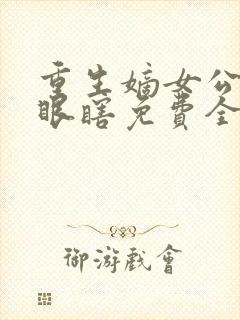 重生嫡女公
眼瞎免费全
御游戏会